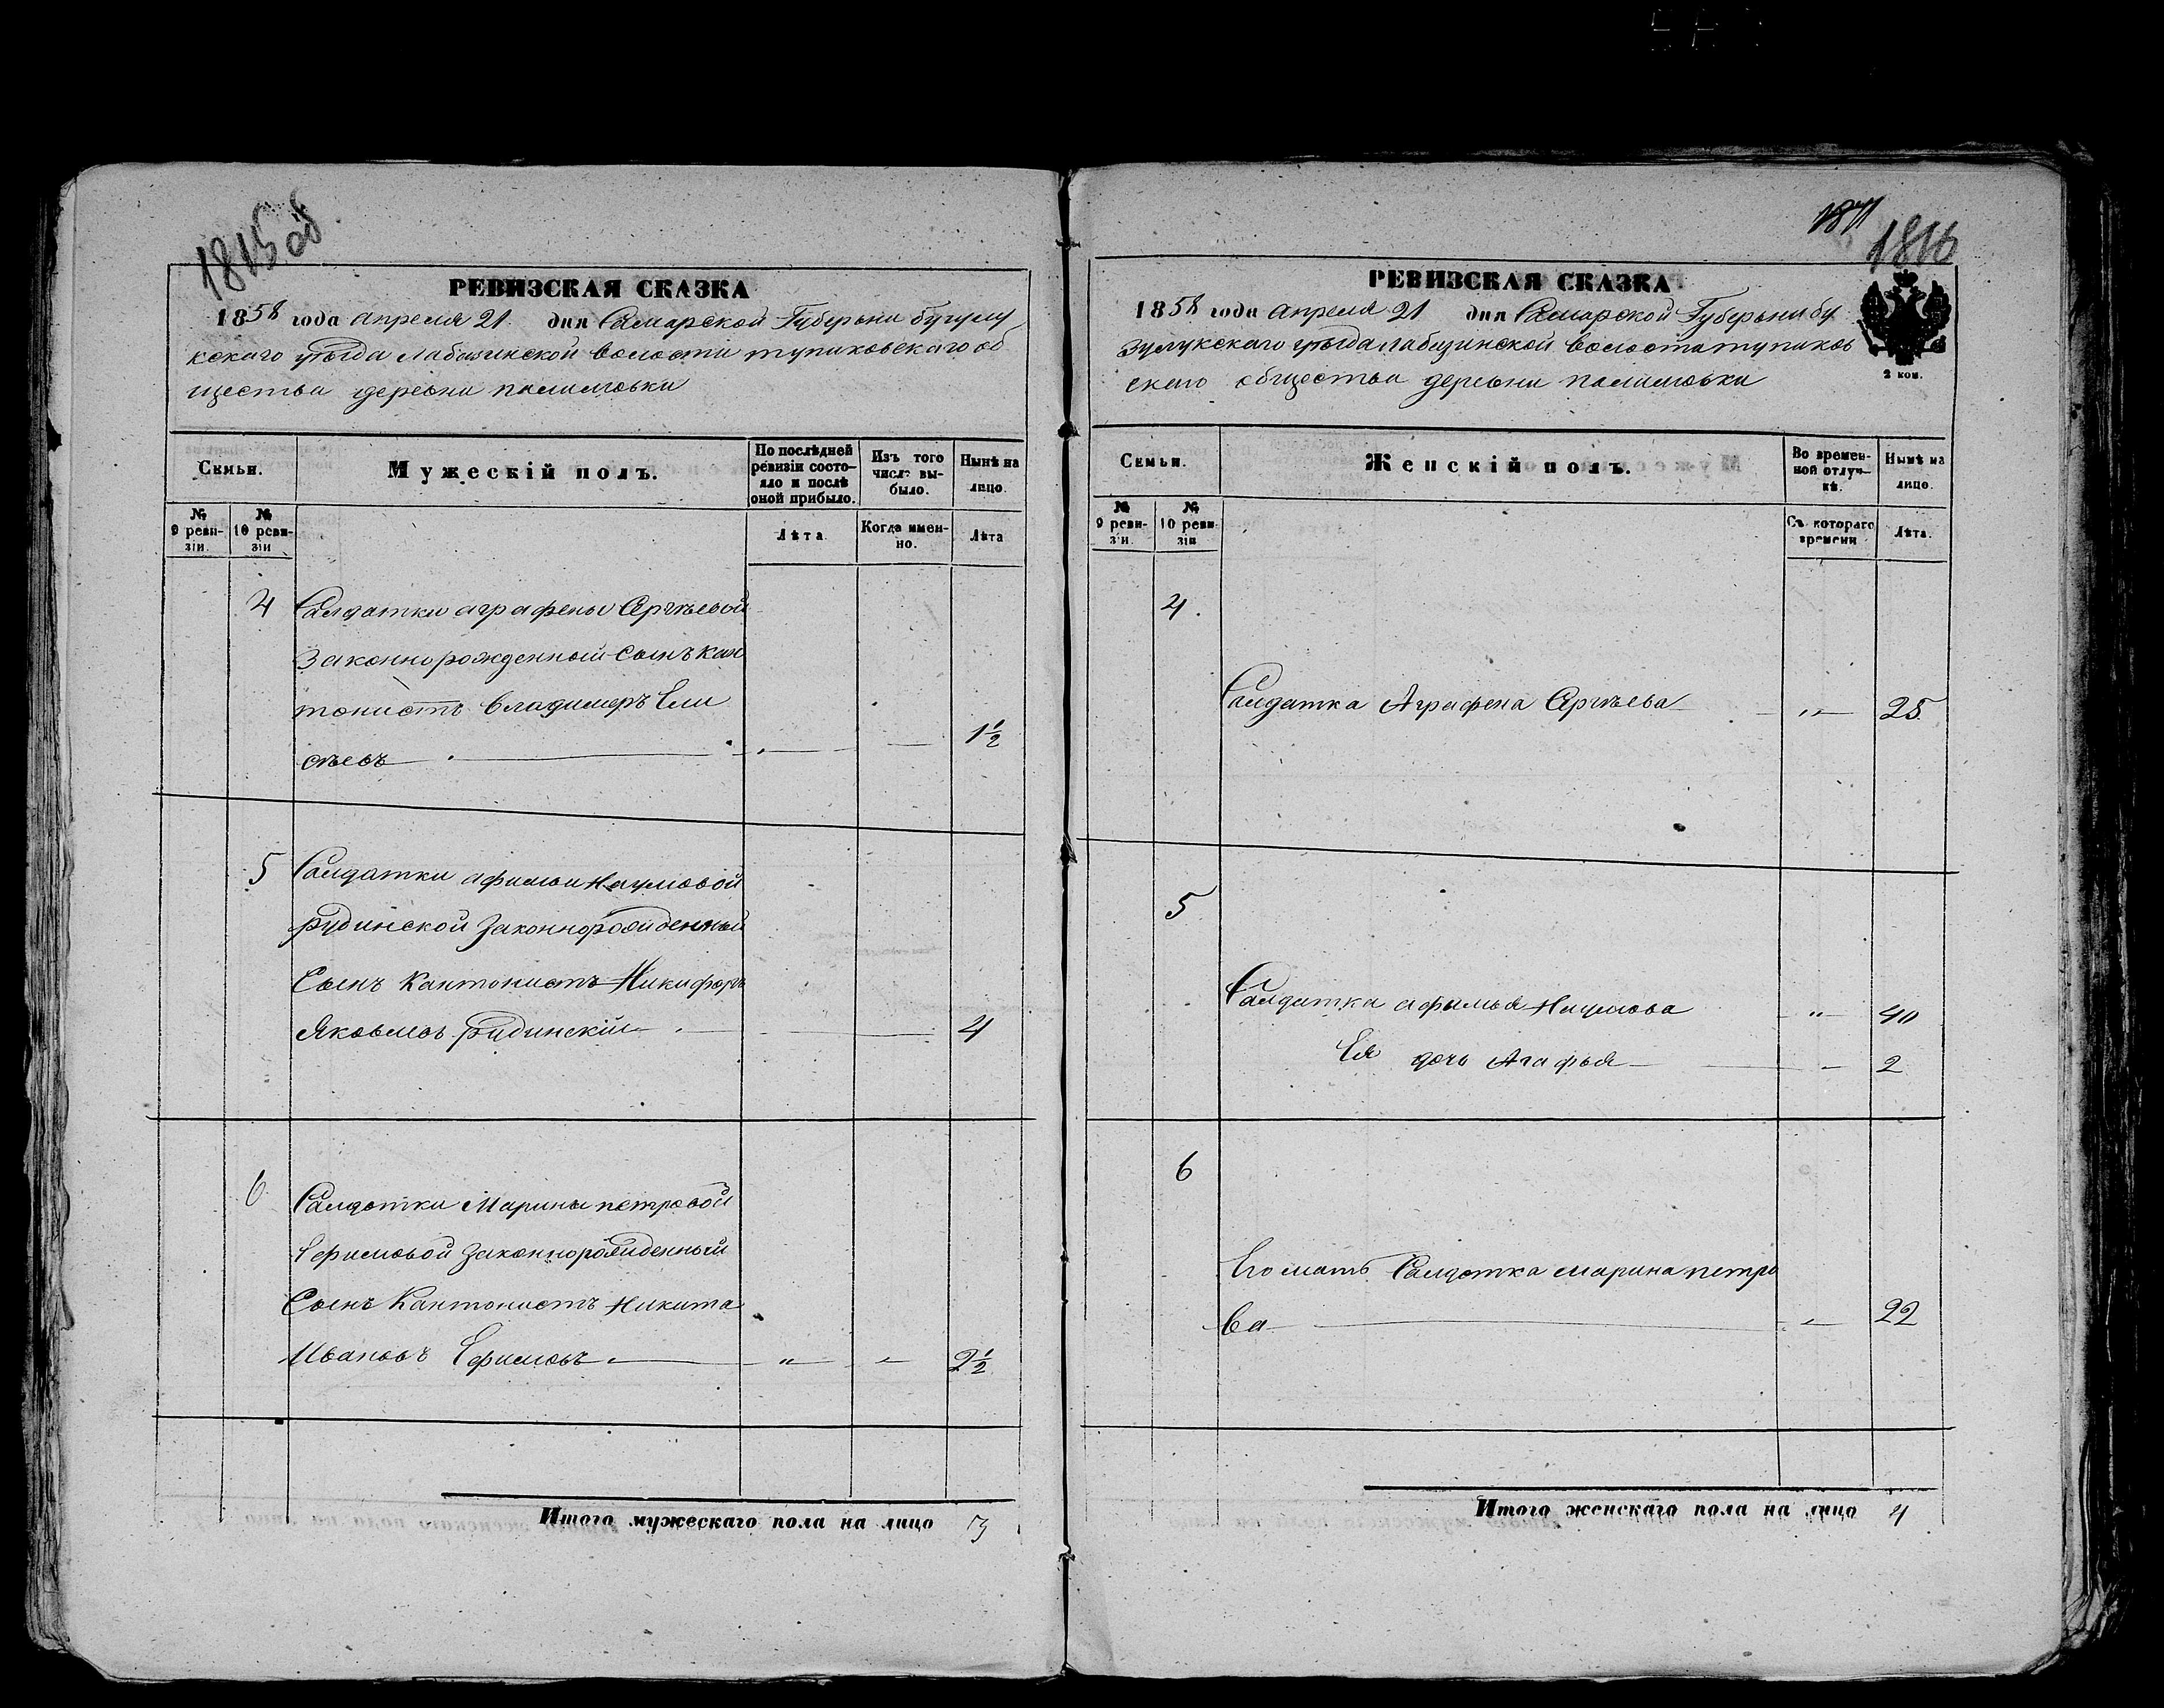 1815 об
РЕВИЗСКАЯ СКАЗКА
1858 года апреля 21 дня Самарской Губерьни бузулу
кскаго уѣзда Лабазинской волости тупиковскаго об
щества деревни палимовки
Семьи.
Мужескій полъ.
По послѣдней ревизіи состояло и послѣ оной прибыло.
Изъ того числа выбыло.
Нынѣ на лицо.
№ 9 ревизіи.
№ 10 ревизіи
Лѣта
Когда именно.
Лѣта
4 Салдатки аграфены Сергѣевой
Законнорожденный Сынъ кан
тонистъ Владимеръ Ели
сѣевъ — — 1½
5 Салдатки афимьи Наумовой
рудинской Законнорожденный
Сынъ Кантонистъ Никифоръ
Яковлевъ рудинскій — — 4
6 Салдатки Марины петровой
Ефимовой Законнорожденный
Сынъ Кантонистъ Никита
Ивановъ Ефимовъ — " — 2½
Итого мужескаго пола на лицо 3
1871
1816
РЕВИЗСКАЯ СКАЗКА
1858 года апреля 21 дня Самарской Губерьни бу
зулукскаго уѣзда лабазинской волости тупиков
скаго общества деревни палимовки
2 коп.
Семьи.
Женскій полъ.
Во временной отлучкѣ.
Нынѣ на лицо.
№ 9 ревизіи.
№ 10 ревизіи
Съ котораго времени
Лѣта.
4
Салдатка Аграфена Сергѣева — " — 25
5
Салдатка афимья Наумова — " — 40
Ея дочь Агафья — — 2
6
Его мать Салдатка марина петро
ва — " — 22
Итого женскаго пола на лицо 4